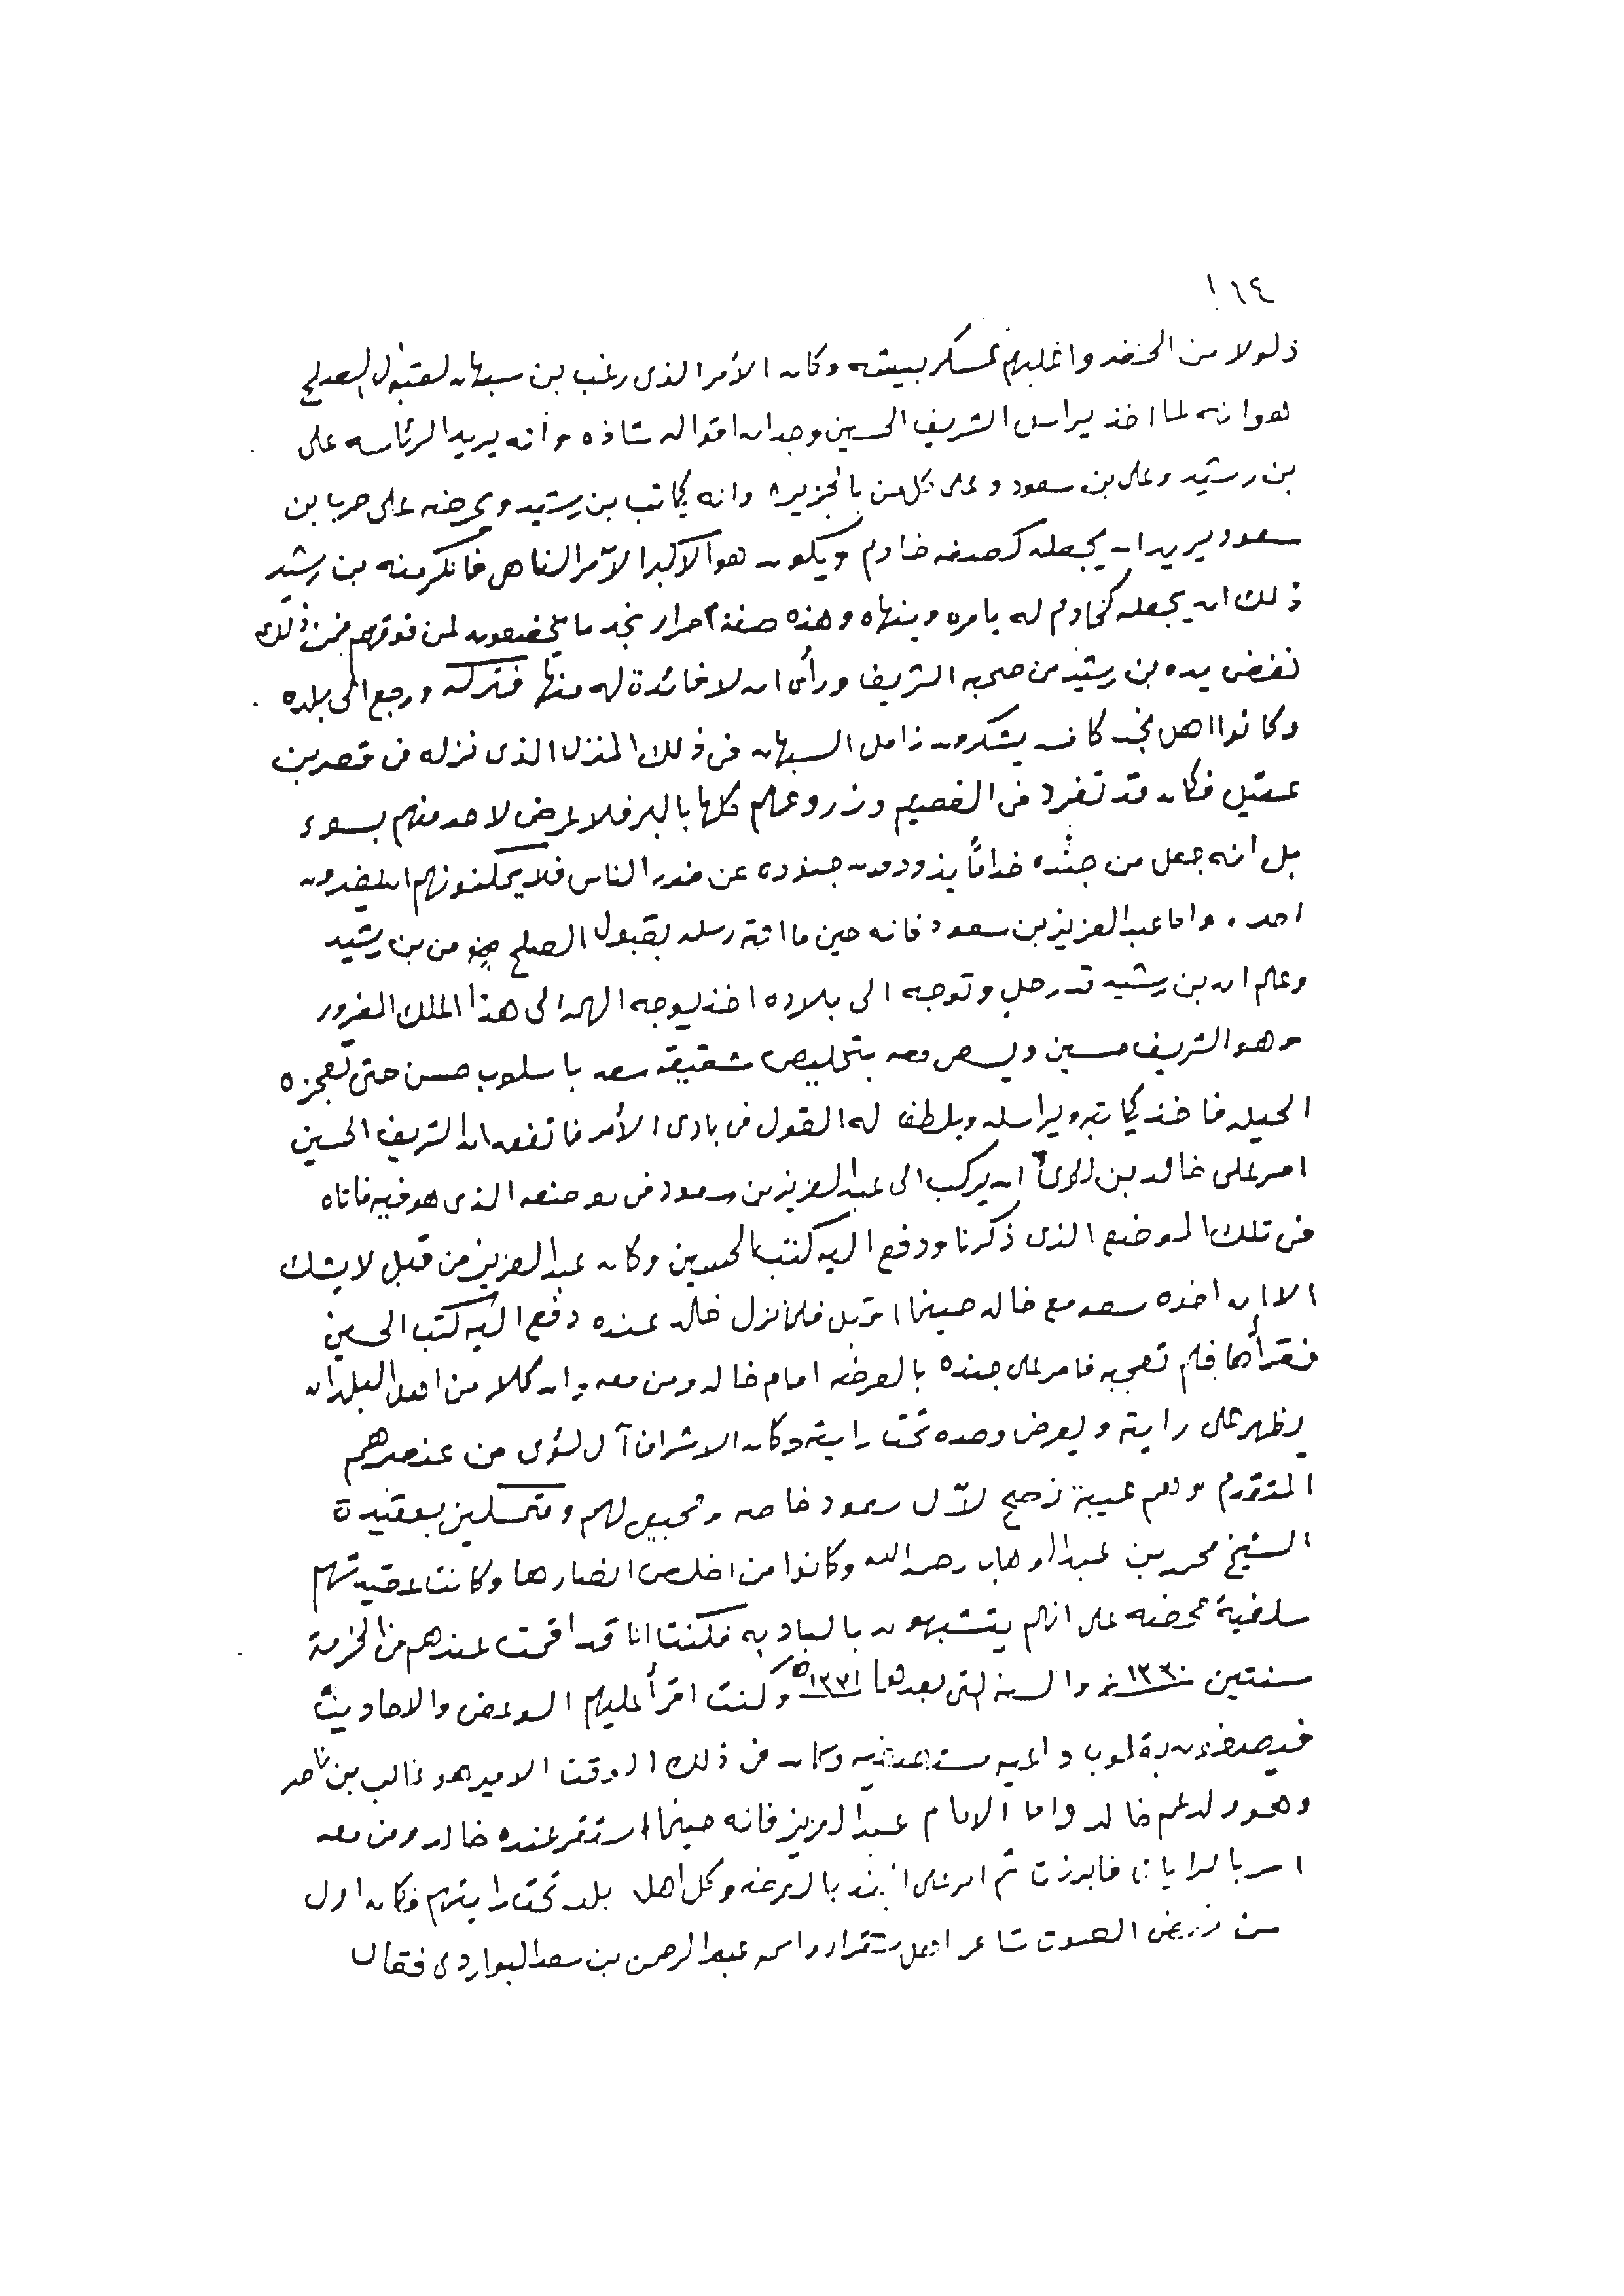 ١١٤
ذلولا من الحضر واغلبهم عسكر بيشه وكان الأمر الذى رغب بن سبهان لقبول الصلح
هو انه لما اخذ يراسل الشريف الحسين وجد ان اقواله شاذه وأنه يريد الرئاسه على
بن رشيد وعلى بن سعود وعلى كل من بالجزيره وانه يكاتب بن رشيد ويحرضه على حرب ابن
سعود يريد ان يجعله كصفة خادم ويكون هو الاكبر الآمر الناهى فانكر منه بن رشيد
ذلك ان يجعله كخادم له يامره وينهاه وهذه صفة احرار نجد ما يخضعون لمن فوقهم فمن ذلك
نفض يده بن رشيد من صحبه الشريف ورأى ان لا فائدة له منها فتركه ورجع الى بلده
وكانوا اهل نجد كافه يشكرون زامل السبهان فى ذلك المنزل الذى نزله فى قصر بن
عقيل فكان قد تفرد فى القصيم وزروعهم كلها بالبر فلا عرض لاحد منهم بسوء
بل انه جعل من جنده خداماً يذودون جنوده عن ضرر الناس فلا يمكنونهم ان يضرون
احد . واما عبد العزيز بن سعود فانه حين ما اتته رسله بقبول الصلح من بن رشيد
وعلم ان بن رشيد قد رحل وتوجه الى بلاده اخذ يوجه الهم الى هذا الملك المغرور
وهو الشريف حسين ويسعى معه بتخليص شقيقه سعد باسلوب حسن حتى تعجزه
الحيله فاخذ يكاتبه ويراسله ويلطف له القول فى بادى الأمر فاتفق ان الشريف الحسين
امر على خالد بن لؤى ان يركب الى عبد العزيز بن سعود فى موضعه الذى هو فيه فاتاه
فى تلك الموضع الذى ذكرنا ودفع اليه كتب الحسين وكان عبد العزيز من قبل لا يشك
الا ان اخوه سعد مع خالد حينما اقبل فلما نزل خالد عنده دفع اليه كتب الحسين
فقرأها فلم تعجبه فامر على جنده بالعرضه امام خالد ومن معه وان كلا من اهل البلدان
يظهر على راية ويعرض وحده تحت رايته وكان الاشراف آل لؤى من عنصرهم
المتقدم وهم عيبة نصح لآل سعود خاصه ومحبين لهم ومتمسكين بعقيدة
الشيخ محمد بن عبد الوهاب رحمه الله وكانوا من اخلص انصارها وكانت عقيدتهم
سلفية محضه على انهم يتشبهون بالباديه فكنت انا قد اقمت عندهم فى الخرمة
سنتين ١٣٣٠ والسنه التى بعدها ١٣٣١ه وكنت اقرأ عليهم الوعض والاحاديث
فيصغون بقلوب واعيه مستهديه وكان فى ذلك الوقت الامير هو غالب بن ناصر
وهو ولد عم خالد واما الامام عبد العزيز فانه حينما استقر عنده خالد ومن معه
امر بالرايات فابرزت ثم امر على الجند بالعرضه وكل اهل بلد تحت رايتهم فكان اول
من الصوت شاعر اهل شقراء واسمه عبد الرحمن بن سعد البواردى فقال